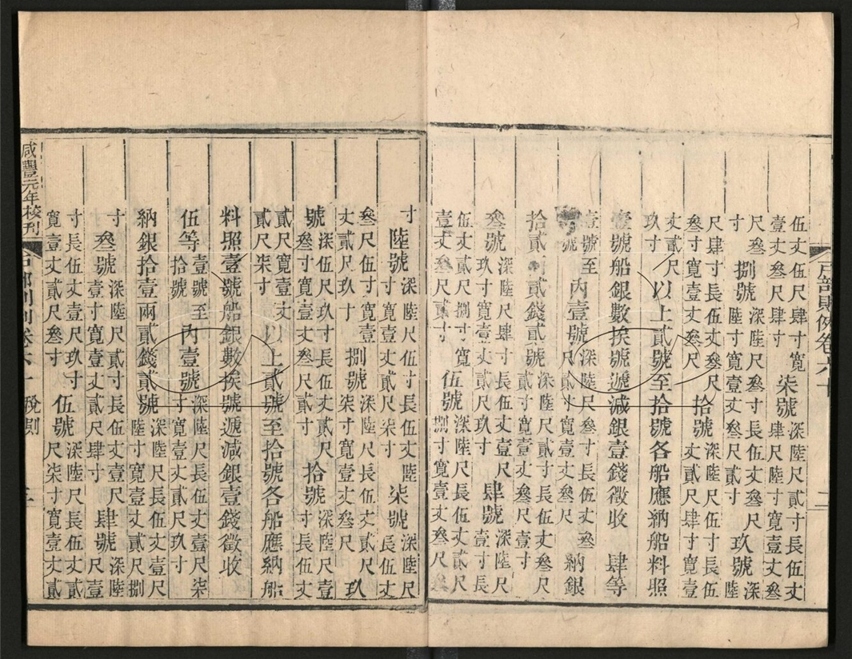 戶部則例卷六十 二
伍丈伍尺肆寸寬壹丈叄尺肆寸 柒號 深陸尺貳寸長伍丈肆尺陸寸寬壹丈叄
尺叄寸 捌號 深陸尺叄寸長伍丈叄尺陸寸寬壹丈叄尺貳寸 玖號 深陸
尺肆寸長伍丈叄尺叄寸寬壹丈叄尺 拾號 深陸尺伍寸長伍丈貳尺肆寸寬壹
丈貳尺玖寸 以上貳號至拾號各船應納船料照
壹號船銀數挨號遞減銀壹錢徵收 肆等
壹號至號 內壹號 深陸尺叄寸長伍丈叄尺貳寸寬壹丈叄尺 納銀
拾貳兩貳錢貳號 深陸尺貳寸長伍丈叄尺貳寸寬壹丈叄尺貳寸
叄號 深陸尺肆寸長伍丈壹尺玖寸寬壹丈叄尺貳寸 肆號 深陸尺壹寸長
伍丈貳尺捌寸寬壹丈叄尺貳寸 伍號 深陸尺長伍丈貳尺捌寸寬壹丈叄尺叄
寸 陸號 深陸尺伍寸長伍丈陸寸寬壹丈貳尺柒寸 柒號 深陸尺長伍丈
叄尺伍寸寬壹丈貳尺玖寸 捌號 深陸尺長伍丈貳尺柒寸寬壹丈叄尺 玖
號 深伍尺玖寸長伍丈貳尺寬壹丈叄尺貳寸 拾號 深陸尺壹寸長伍丈
貳尺寬壹丈貳尺柒寸 以上貳號至拾號各船應納船
料照壹號船銀數挨號遞減銀壹錢徵收
伍等 壹號至拾號 內壹號 深陸尺長伍丈壹尺柒寸寬壹丈貳尺玖寸
納銀拾壹兩貳錢貳號 深陸尺長伍丈壹尺陸寸寬壹丈貳尺捌
寸 叄號 深陸尺貳寸長伍丈壹尺壹寸寬壹丈貳尺肆寸 肆號 深陸尺壹
寸長伍丈壹尺玖寸寬壹丈貳尺叄寸 伍號 深陸尺長伍丈貳尺柒寸寬壹丈貳
咸豐元年校刊 戶部則例卷六十 稅則 三